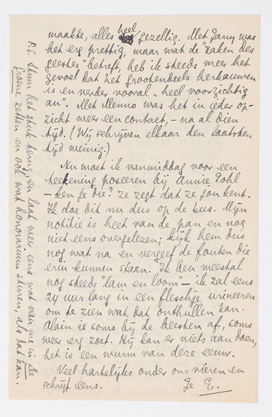 maakte, alles heel gezellig. Met Jany was
het erg prettig, maar wat de "zaken des
geestes" betreft, heb ik steeds meer het
gevoel dat het grootendeels herkauwen
is en verder vooral "heel voorzichtig
an". Met Menno was het in ieder op-
zicht meer een contact, – na al dien
tijd. (Wij schrijven elkaar den laatsten
tijd weinig.)
Nu moet ik vanmiddag voor een
teekening poseeren bij Annie Pohl
– ken je die? Ze zegt dat ze jou kent.
Ik doe dit nu dus op de bus. Mijn
notitie is heet van de pan en nog
niet eens overgelezen; kijk hem dus
nog wat na en vergeef de fouten die
erin kunnen staan. Ik ben meestal
nog steeds lam en loom – ik zat eens
24 uur lang in een flesch te urineeren
om te zien wat dat onthullen kan.
Alain is soms bij de beesten af, soms
weer erg zoet. Hij kan er niets aan doen,
het is een wurm van deze eeuw.
Veel hartelijks onder ons vieren en
schrijf eens. Je E.
P.S. Stuur het stuk terug, en laat